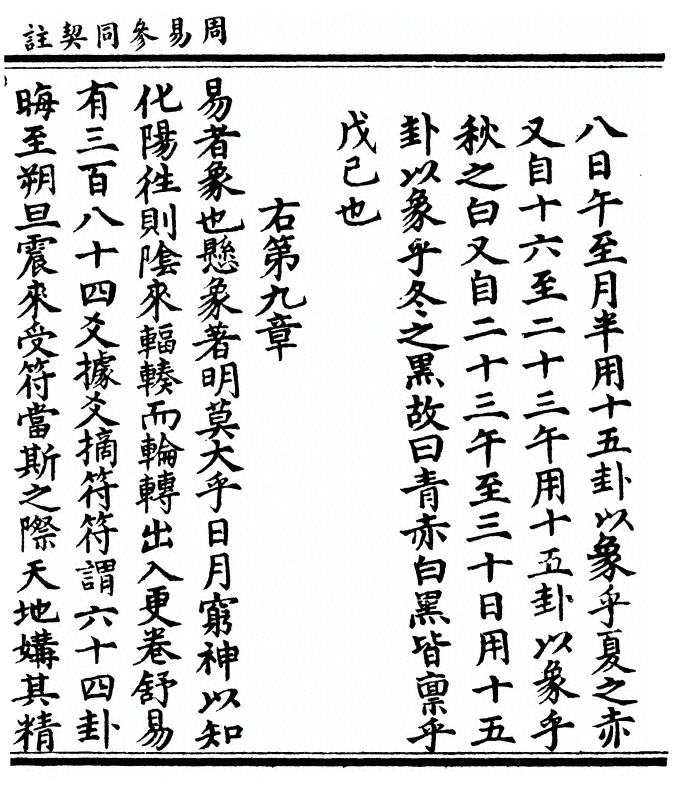 周易參同契註
八日午至月半用十五卦以象乎夏之赤
又自十六至二十三午用十五卦以象乎
秋之白又自二十三午至三十日用十五
卦以象乎冬之黑故曰青赤白黑皆禀乎
戊己也
右第九章
易者象也懸象著明莫大乎日月窮神以知
化陽往則陰來輻輳而輪轉出入更卷舒易
有三百八十四爻據爻摘符符謂六十四卦
晦至朔旦震來受符當斯之際天地媾其精